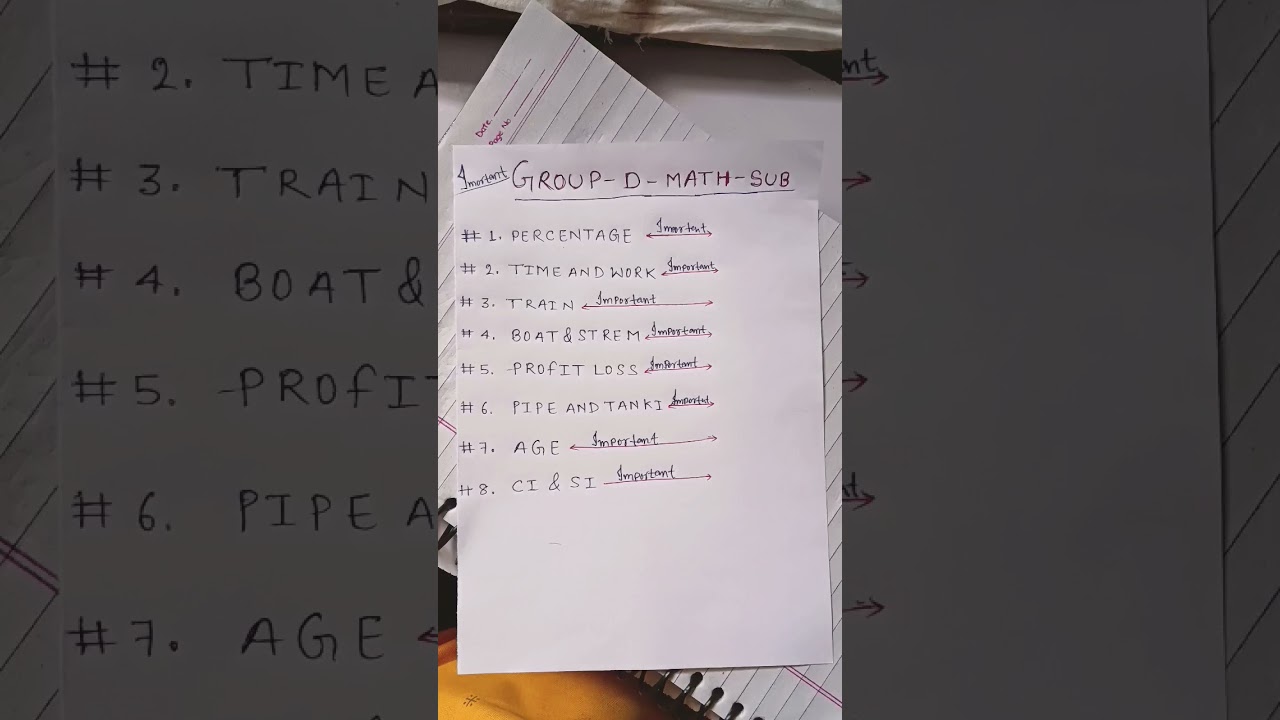 Date.
Page No
Imortant GROUP-D-MATH-SUB
# 1. PERCENTAGE Important
# 2. TIME AND WORK Important
# 3. TRAIN Important
# 4. BOAT & STREM Important
# 5. PROfIT LOSS Important
# 6. PIPE AND TANKI Important
# 7. AGE Important
# 8. CI & SI Important
# 2. TIME A
# 3. TRAIN
# 4. BOAT &
# 5. PROfIT
# 6. PIPE A
# 7. AGE